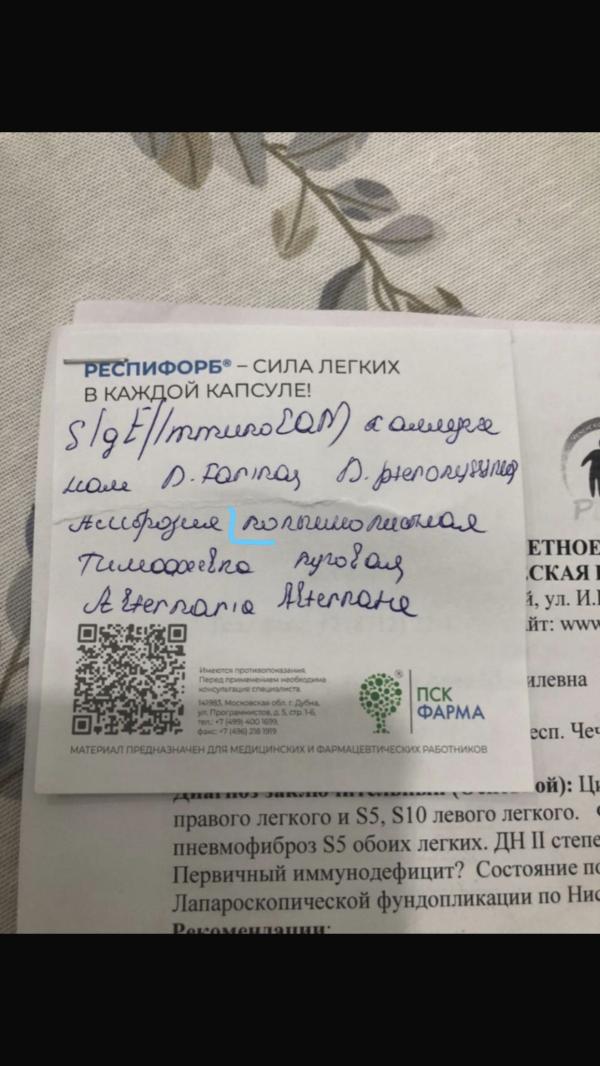 РЕСПИФОРБ® – СИЛА ЛЕГКИХ
В КАЖДОЙ КАПСУЛЕ!
SIgE (ImmunoCAP) к аллерге
нам D. Farinae D. pteronyssinus
Амброзия полыннолистная
Тимофеевка луговая
Alternaria Alternata
Имеются противопоказания.
Перед применением необходима
консультация специалиста.
141983, Московская обл. г. Дубна,
ул. Программистов, д. 5, стр. 1-6,
тел.: +7 (499) 400 1699,
факс: +7 (496) 218 1919
ПСК
ФАРМА
МАТЕРИАЛ ПРЕДНАЗНАЧЕН ДЛЯ МЕДИЦИНСКИХ И ФАРМАЦЕВТИЧЕСКИХ РАБОТНИКОВ
ЕТНОЕ
СКАЯ
й, ул. И.
йт: www
илевна
есп. Чеч
Диагноз заключительный
правого легкого и S5, S10 левого легкого.
пневмофиброз S5 обоих легких. ДН II степе
Первичный иммунодефицит? Состояние по
Лапароскопической фундопликации по Нис
Рекомендации: